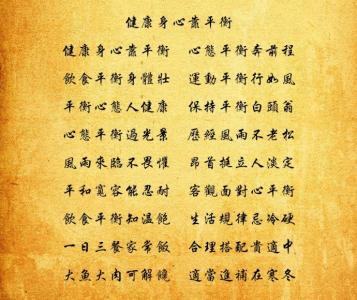 健康身心靠平衡
健康身心靠平衡 心態平衡奔前程
飲食平衡身體壯 運動平衡行如風
平衡心態人健康 保持平衡白頭翁
心態平衡過光景 歷經風雨不老松
風雨來臨不畏懼 昂首挺立人淡定
平和寬容能忍耐 客觀面對心平衡
飲食平衡知溫飽 生活規律忌冷硬
一日三餐家常飯 合理搭配貴適中
大魚大肉可解饞 適當進補在寒冬